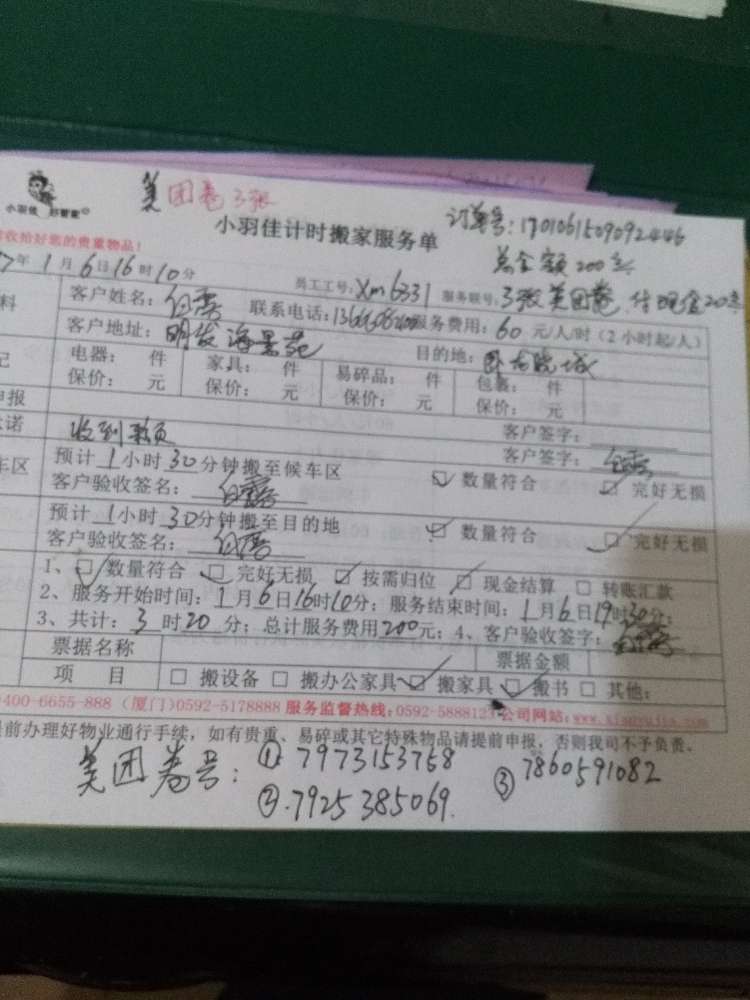 美团卷3张
小羽佳 好管家
小羽佳计时搬家服务单
订单号:1701061509092446
收拾好您的贵重物品!
总金额200元
年1月6日16时10分
员工工号:Xm6331 服务联号:3张美团卷,付现金20元
客户姓名: 联系电话: 服务费用:60元/人/时(2小时起/人)
客户地址:明发海景苑 目的地:
电器: 件 家具: 件 易碎品: 件 包裹: 件
保价: 元 保价: 元 保价: 元 保价: 元
申报 客户签字:
诺 收到 客户签字:
车区 预计1小时30分钟搬至候车区 数量符合 完好无损
客户验收签名:
预计1小时30分钟搬至目的地 数量符合 完好无损
客户验收签名:
1、数量符合 完好无损 按需归位 现金结算 转账汇款
2、服务开始时间:1月6日16时10分;服务结束时间:1月6日19时30分;
3、共计:3时20分;总计服务费用200元;4、客户验收签字:
票据名称 票据金额
项 目 搬设备 搬办公家具 搬家具 搬书 其他:
400-6655-888(厦门)0592-5178888 服务监督热线:0592-5888123 公司网站:
前办理好物业通行手续,如有贵重、易碎或其它特殊物品请提前申报,否则我司不予负责。
美团卷号:①7973153758 ③7860591082
②7925385069.